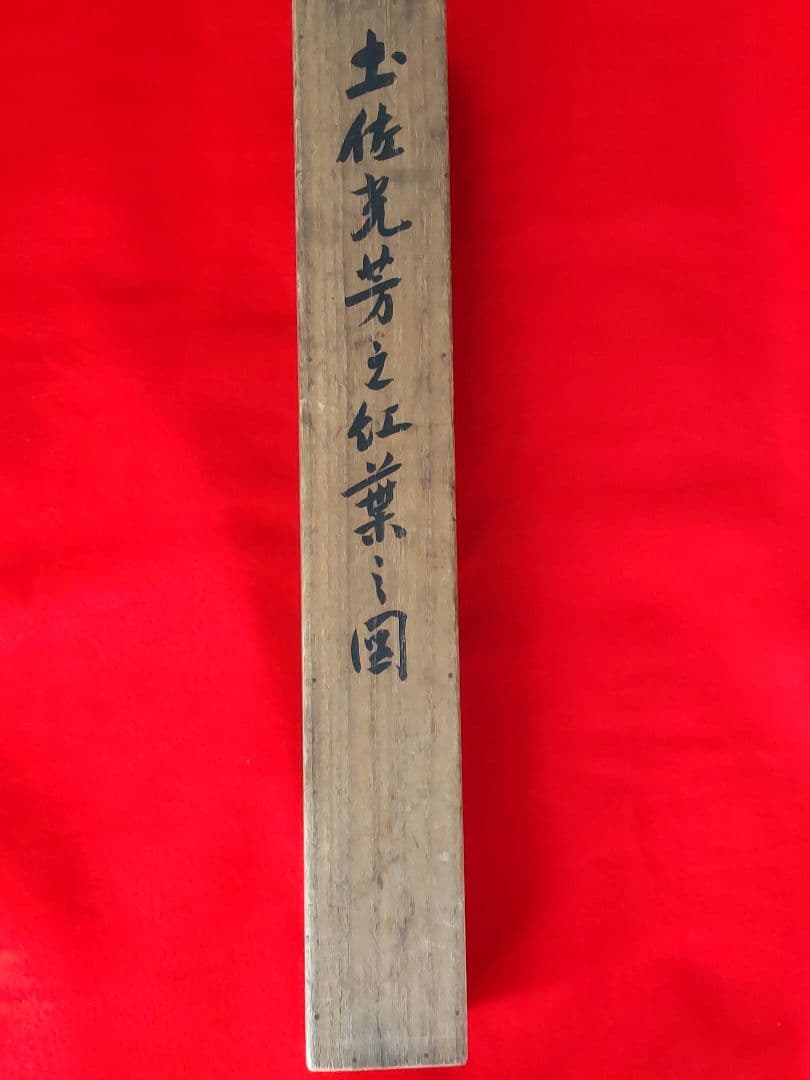 土佐光芳之紅葉之図